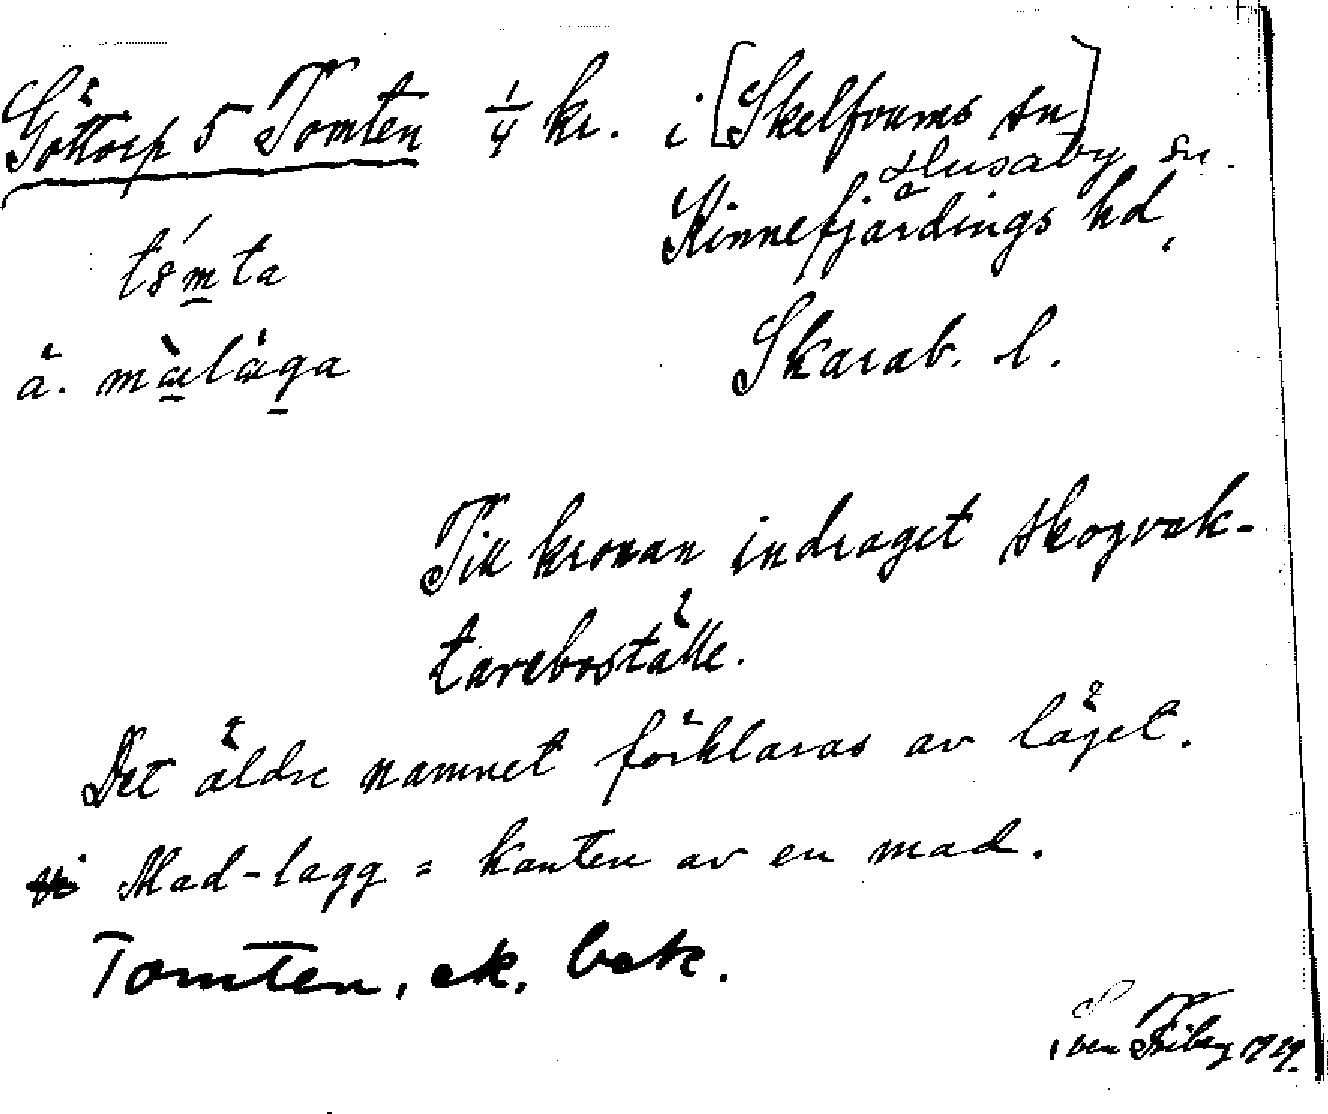 Göttorp 5 Tomten 1/4 kr. i [Skelfvums sn]
Husaby sn.
Kinnefjärdings hd,
tómta
ä. màlaga
Skarab. l.
Till kronan indraget skogvak-
tareboställe.
Det äldre namnet förklaras av läget.
Mad-lagg = kanten av en mad.
Tomten, ek. bek.
Sven Friberg